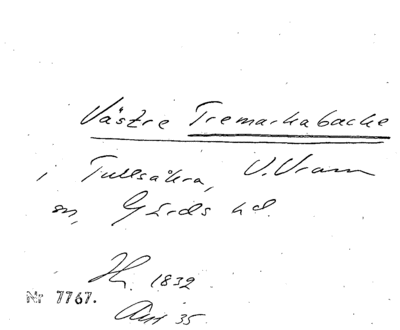 Västre Tremarkabacke
i Tullsåkra, V. Vram
sn, Gärds hd.
H. 1832
Nr 7767.
Akt 35.